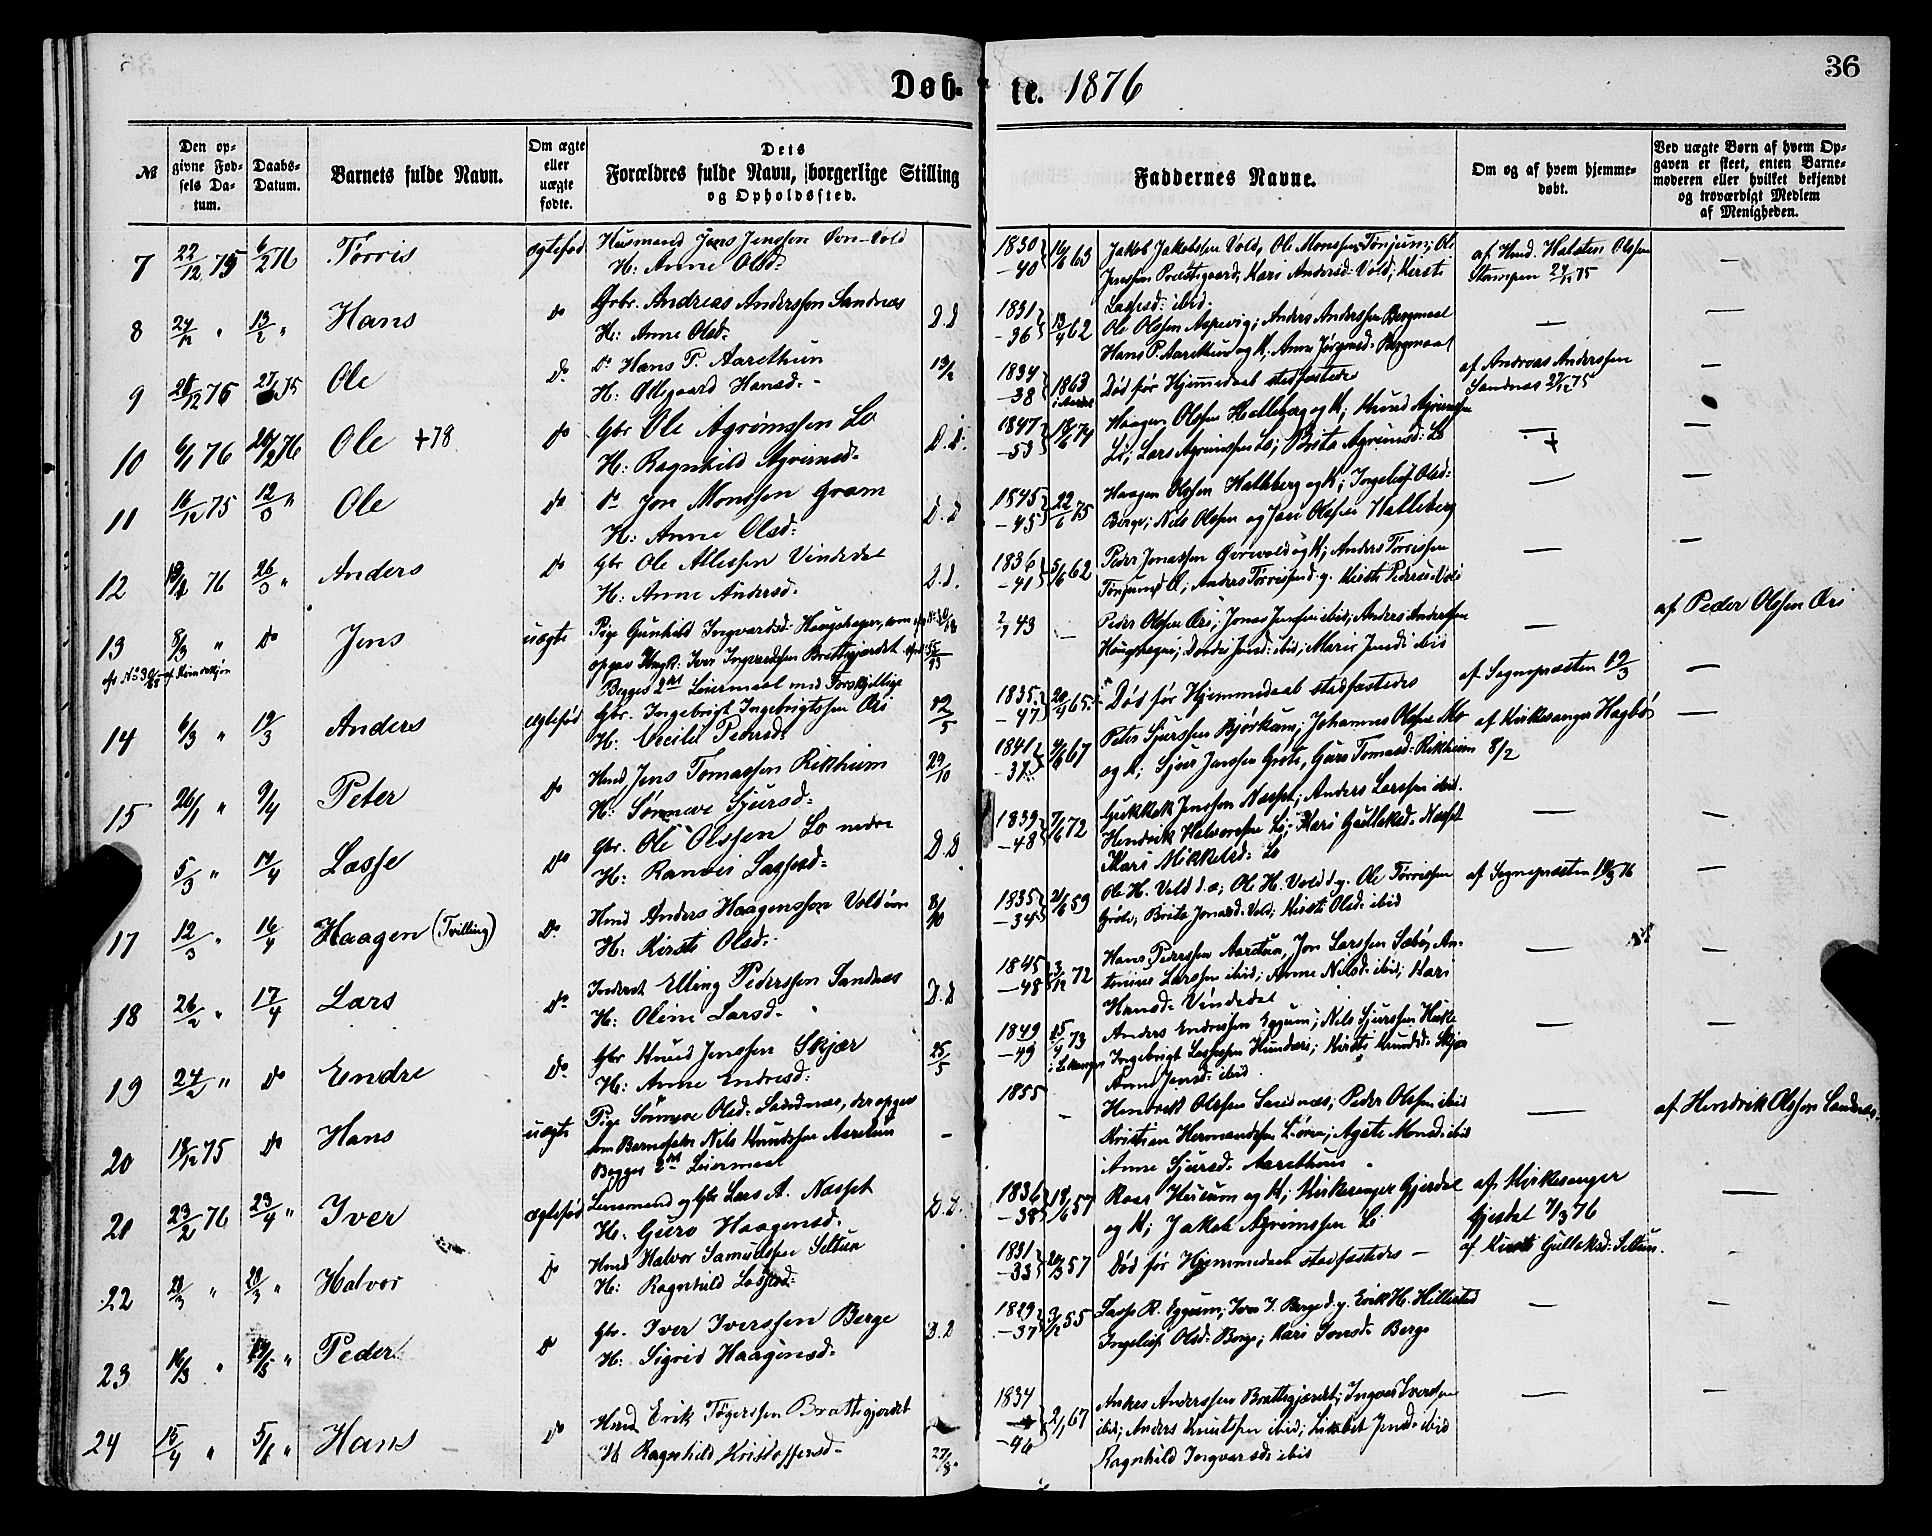 36
Døb- te. 1876
№
Den opgivne Fødsels Datum.
Daabs-Datum.
Barnets fulde Navn.
Om ægte eller uægte fødte.
Dets Forældres fulde Navn, borgerlige Stilling og Opholdssted.
Faddernes Navne.
Om og af hvem hjemmedøbt.
Ved uægte Børn af hvem Opgaven er skeet, enten Barnemoderen eller hvilket bekjendt og troværdigt Medlem af Menigheden.
7 22/12 75 6/2 76 Tørris ægtefød Husmand Jens Jenssen Vold
H: Anne Olsd:
1830 -40 63 Jakob Jakobssen Vold, Ole Monssen Tønjum; Ole
Jenssen Præstegaard; Kari Andersd: Vold; Kersti
Lassesd: ibid.
af Hmd. Halsten Olssen
Stampen 24/12 75
—
8 24/12 " 13/2 " Hans do Gbr. Andreas Anderssen Sandnæs
H: Anne Olsd:
D.D
1831 -36 13/4 62 Ole Olssen Aspevig; Anders Anderssen Bergmaal
Hans P. Aarethun og K. Anne Jørgensd: Bergmaal
— —
9 Ole Do. Do Hans P. Aarethun
H: Ollegaard Hansd:
13/2
1834 -38 1863 Død før Hjemmedaab stadfæstedes
af Andreas Anderssen
Sandnæs 27/12 75
—
10 6/1 76 20/2 76 Ole +78 do Gbr Ole Agrimssen Lo
H: Ragnhild Agrimsd:
D.D.
1847 -53 18/6 74 Haagen Olssen Halleberg og K; Knud Agrimssen
Lo; Lars Agrimssen Lo; Brita Agrimsd: Lo
— —
11 16/12 75 12/3 " Ole do do Jon Monssen Gram
H: Anne Olsd:
D.D
1845 -45 22/6 75 Haagen Olssen Halleberg og K; Ingeleif Olsd:
Berge; Nils Olssen og Jens Olssen Halleberg
— —
12 76 26/3 " Anders do Gbr Ole Allessen Vindedal
H: Anne Andersd.
D.D.
1836 -41 5/6 62 Peder Jonassen Øvrevold og K; Anders Tørrissen
Tønjum d. Æ; Anders Tørrissen d. y. Kirsti Pedersd: Vold
— —
13 8/3 " do Jens uægte Pige Gunhild Ingvardsd: Haugehagen, som
opgav Ungk: Iver Ingvardssen Brattegjerdet
Begges 2det Leiermaal med Forskjellige
43 — Peder Olssen Øri; Jonas Jenssen ibid; Anders Anderssen
Haugehagen; Dordei Jensd: ibid; Marie Jensd: ibid
—
af Peder Olssen Øri
14 6/3 " 19/3 Anders ægtefød Gbr. Ingebrigt Ingebrigtssen Øri
H: Cecilie Pedersd:
12/5
1835 -47 20/4 65 Død før Hjemmedaab stadfæstedes
af Sognepræsten 19/3
—
15 26/1 " 9/4 Peter do Hmd Jens Tomassen Rikheim
H: Sønneve Sjursd:
29/10
1841 -37 67 Peter Sjurssen Bjørkum; Johannes Olssen Mo
og K; Sjur Janssen Grøte, Guro Tomasd: Rikheim
af Kirkesanger Hagbø
8/2
—
5/3 " 17/4 Lasse do Gbr. Ole Olssen Lo nedre
H: Ranvei Lassesd:
D.D
1839 -48 7/6 72 Gullek Jenssen Næsset; Anders Larssen ibid.
Hendrik Halvorssen Lo; Kari Gulleksd: Næsset
Kari Mikkelsd: Lo
— —
17 12/3 " 16/4 Haagen (Tvilling) do. Hmd Anders Haagenssen Vold
H: Kirsti Olsd:
8/10
1835 -34 2/6 59 Ole H. Vold d. æ; Ole H. Vold d. y. Ole Tørrissen
Grøte; Brita Jonasd: Vold; Kirsti Olsd: ibid
af Sognepræsten 76
—
18 26/2 " 17/4 Lars do Inderst Elling Pederssen Sandnæs
H: Oline Larsd:
D.D
1845 -48 3/12 72 Hans Pederssen Aaretun, Jon Larssen Sæbø, An-
tonius Larssen ibid; Anne Nilsd: ibid; Kari
Hansd: Vindedal
— —
19 24/2 " do Endre do Gbr Knud Jenssen Skjær
H: Anne Endresd:
25/5
1849 -49 15/4 73 Anders Endressen Eggum; Nils Sjurssen Hukle
Ingebrigt Lassessen Hunderi; Kirsti Knudsd: Skjær
Anne Jensd: ibid.
— —
20 18/12 75 do Hans uægte Pige Sønneve Olsd: Sandnæs, der opgav
som Barnefader Nils Knudssen Aaretun
Begges 2det Leiermaal
—
1855 — Hendrik Olssen Sandnæs; Peder Olssen ibid
Kristian Hermandssen Løren; Agate Monsd: ibid
Anne Sjursd: Aarethun
—
af Hendrik Olssen Sandnæs.
20 23/2 76 23/4 " Iver ægtefød Lensmand og Gbr Lars A. Næsset
H: Guro Haagensd:
D.D.
1836 -38 18/6 57 Roar Husum og K; Kirkesanger Gjerdal
og K; Jakob Agrimssen Lo
af Kirkesanger
Gjerdal 7/3 76
—
22 20/3 " 20/3 " Halvor do Hmd Halvor Samulssen Seltun
H: Ragnhild Lassesd:
1831 -33 57 Død før Hjemmedaab stadfæstedes —
af Kirsti Gulleksd: Seltun.
—
23 16/3 " Peder do Gbr. Iver Iverssen Berge
H: Sigrid Haagensd:
D.D
1829 -37 3/12 55 Lasse R. Eggum; Iver I. Berge d. y. Erik H. Hillestad
Ingeleif Olsd: Berge; Kari Iversd: Berge
— —
24 15/4 " 5/6 " Hans do Hmd Erik Tøgerssen Brattegjerdet
H Ragnhild Kristoffersd:
27/8
1834 -46 2/1 67 Anders Anderssen Brattegjerdet; Ingvar Iverssen
ibid; Anders Knudssen ibid; Lisabet Jensd: ibid
Ragnhild Ingvarsd: ibid
— —